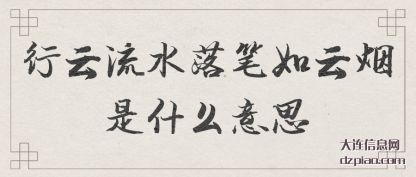 行云流水落笔如云烟
是什么意思
大连信息网
dzpiao.com